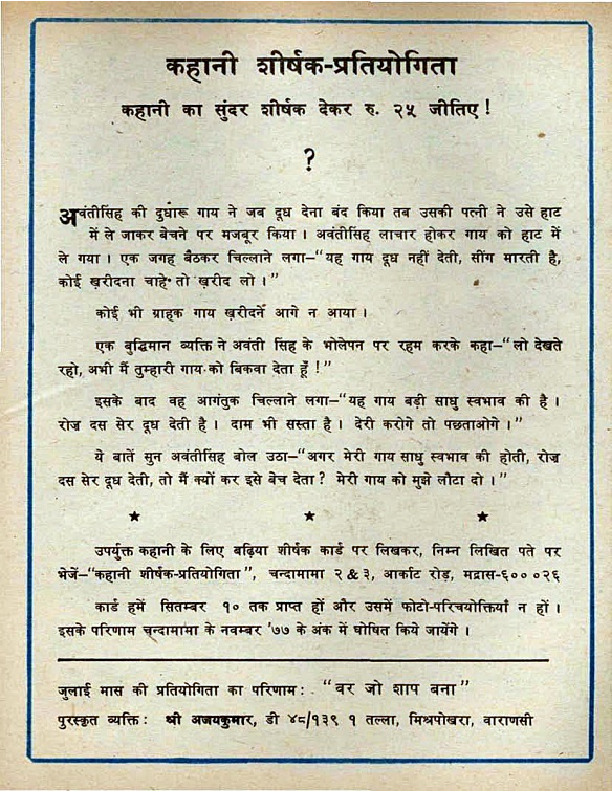 कहानी शीर्षक-प्रतियोगिता
कहानी का सुंदर शीर्षक देकर रु. २५ जीतिए!
?
अवंतीसिंह की दुधारू गाय ने जब दूध देना बंद किया तब उसकी पत्नी ने उसे हाट
में ले जाकर बेचने पर मजबूर किया। अवंतीसिंह लाचार होकर गाय को हाट में
ले गया। एक जगह बैठकर चिल्लाने लगा–“यह गाय दूध नहीं देती, सींग मारती है,
कोई ख़रीदना चाहे तो ख़रीद लो।”
कोई भी ग्राहक गाय ख़रीदने आगे न आया।
एक बुद्धिमान व्यक्ति ने अवंती सिंह के भोलेपन पर रहम करके कहा–“लो देखते
रहो, अभी मैं तुम्हारी गाय को बिकवा देता हूँ!”
इसके बाद वह आगंतुक चिल्लाने लगा–“यह गाय बड़ी साधु स्वभाव की है।
रोज़ दस सेर दूध देती है। दाम भी सस्ता है। देरी करोगे तो पछताओगे।”
ये बातें सुन अवंतीसिंह बोल उठा–“अगर मेरी गाय साधु स्वभाव की होती, रोज़
दस सेर दूध देती, तो मैं क्यों कर इसे बेच देता? मेरी गाय को मुझे लौटा दो।”
★ ★ ★
उपर्युक्त कहानी के लिए बढ़िया शीर्षक कार्ड पर लिखकर, निम्न लिखित पते पर
भेजें–“कहानी शीर्षक-प्रतियोगिता”, चन्दामामा २ & ३, आर्काट रोड़, मद्रास-६०००२६
कार्ड हमें सितम्बर १० तक प्राप्त हों और उसमें फोटो-परिचयोक्तियाँ न हों।
इसके परिणाम चन्दामामा के नवम्बर '७७ के अंक में घोषित किये जायेंगे।
जुलाई मास की प्रतियोगिता का परिणाम: “वर जो शाप बना”
पुरस्कृत व्यक्ति: श्री अजयकुमार, डी ४८/१३९ १ तल्ला, मिश्रपोखरा, वाराणसी